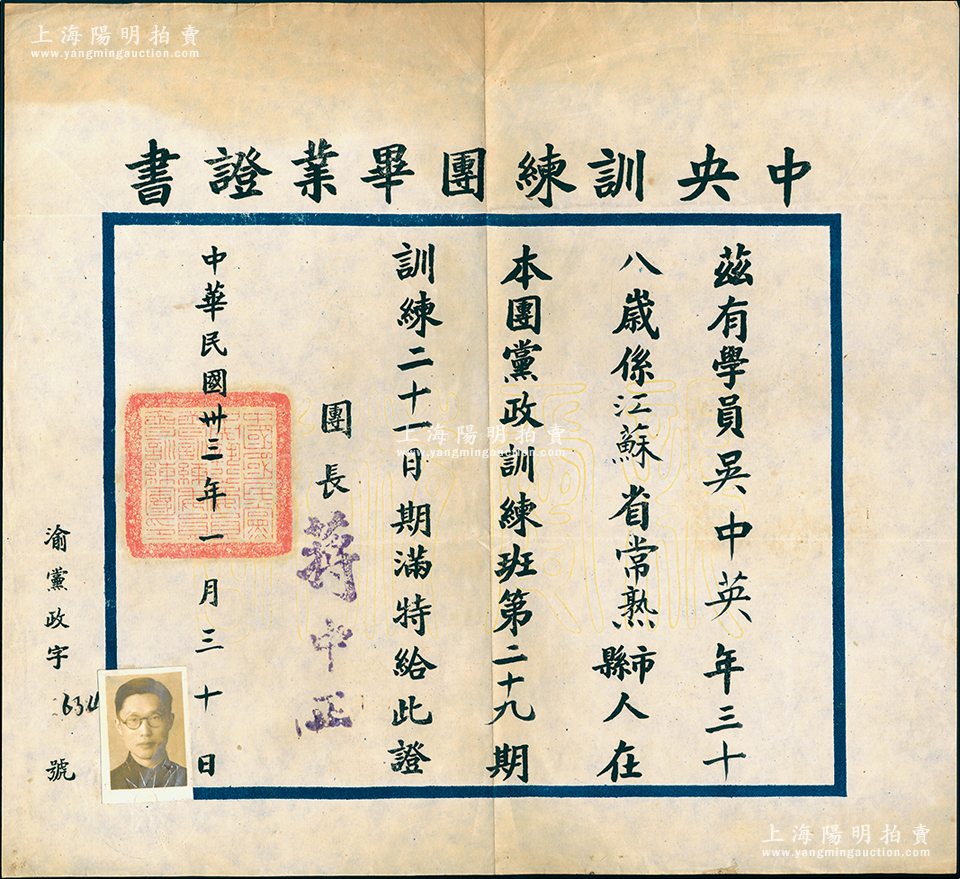 上海陽明拍賣
www.yangmingauction.com
上海陽明拍賣
www.yangmingauction.com
中央訓練團畢業證書
茲有學員吳中英年三十
八歲係江蘇省常熟市縣人在
本團黨政訓練班第二十九期
訓練二十一日期滿特給此證
團長蔣中正
中華民國卅三年一月三十日
渝黨政字號
上海陽明拍賣
www.yangmingauction.com
上海陽明拍賣
www.yangmingauction.com